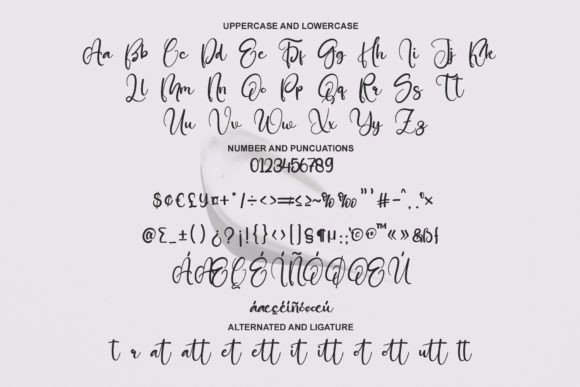 UPPERCASE AND LOWERCASE
Aa Bb Cc Dd Ee Ff Gg Hh Ii Jj Kk
Ll Mm Nn Oo Pp Qq Rr Ss Tt
Uu Vv Ww Xx Yy Zz
NUMBER AND PUNCUATIONS
0123456789
$¢€£¥¤+*/÷<>=≤≥~%‰"'#-^.,°×
@Σ_±()¿?¡!{}‹›[]§¶µ:;©®™«»&ßƒ
ÁÆÇÉÍÑÓØŒÚ
áæçéíñóøœú
ALTERNATED AND LIGATURE
t r at att et ett it itt ot ott utt tt